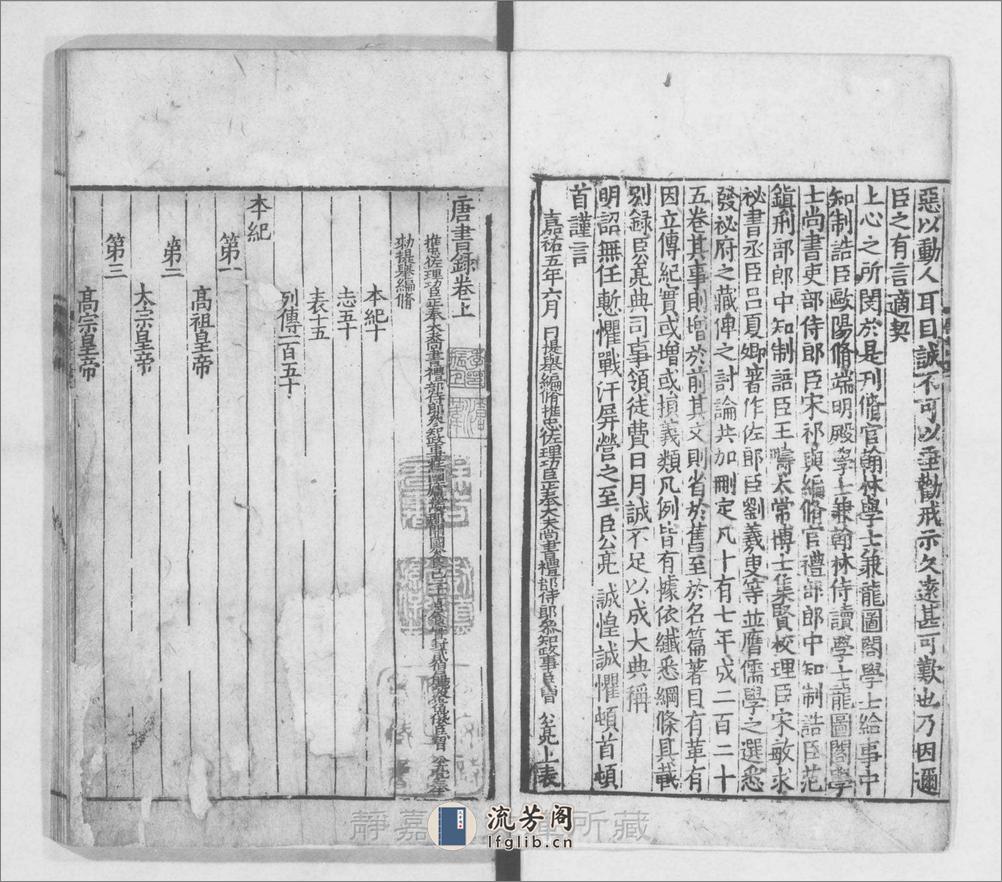 惡以動人耳目誠不可以垂勸戒示久遠甚可歎也乃因邇
臣之有言適契
上心之所閔於是刊脩官翰林學士兼龍圖閣學士給事中
知制誥臣歐陽脩端明殿學士兼翰林侍讀學士龍圖閣學
士尚書吏部侍郎臣宋祁與編脩官禮部郎中知制誥臣范
鎮刑部郎中知制誥臣王疇太常博士集賢校理臣宋敏求
祕書丞臣呂夏卿著作佐郎臣劉羲叟等並膺儒學之選悉
發祕府之藏俾之討論共加刪定凡十有七年成二百二十
五卷其事則增於前其文則省於舊至於名篇著目有革有
因立傳紀實或增或損義類凡例皆有據依纖悉綱條具載
别録臣公亮典司事領徒費日月誠不足以成大典稱
明詔無任慙懼戰汗屏營之至臣公亮 誠惶誠懼頓首頓
首謹言
嘉祐五年六月 日提舉編脩推忠佐理功臣正奉大夫尚書禮部侍郎叅知政事臣曾 公亮上表
唐書録卷上
推忠佐理功臣正奉大夫尚書禮部侍郎叅知政事
勑提舉編脩
本紀十
志五十
表十五
列傳一百五十
本紀
第一
髙祖皇帝
第二
太宗皇帝
第三
髙宗皇帝
靜嘉 所藏
流芳阁
lfglib.cn